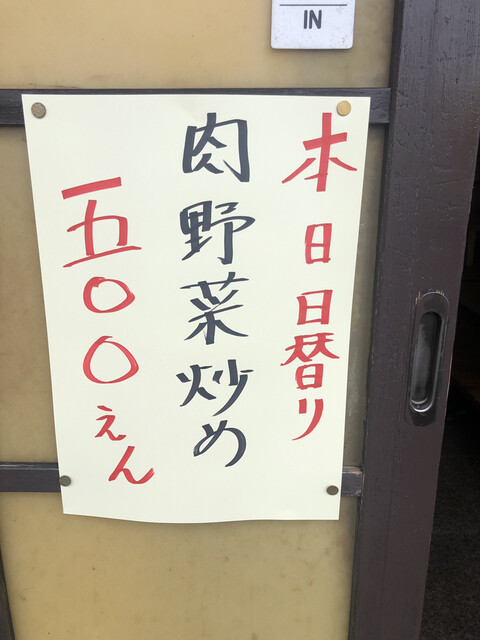 IN
本日日替り
肉野菜炒め
五〇〇えん